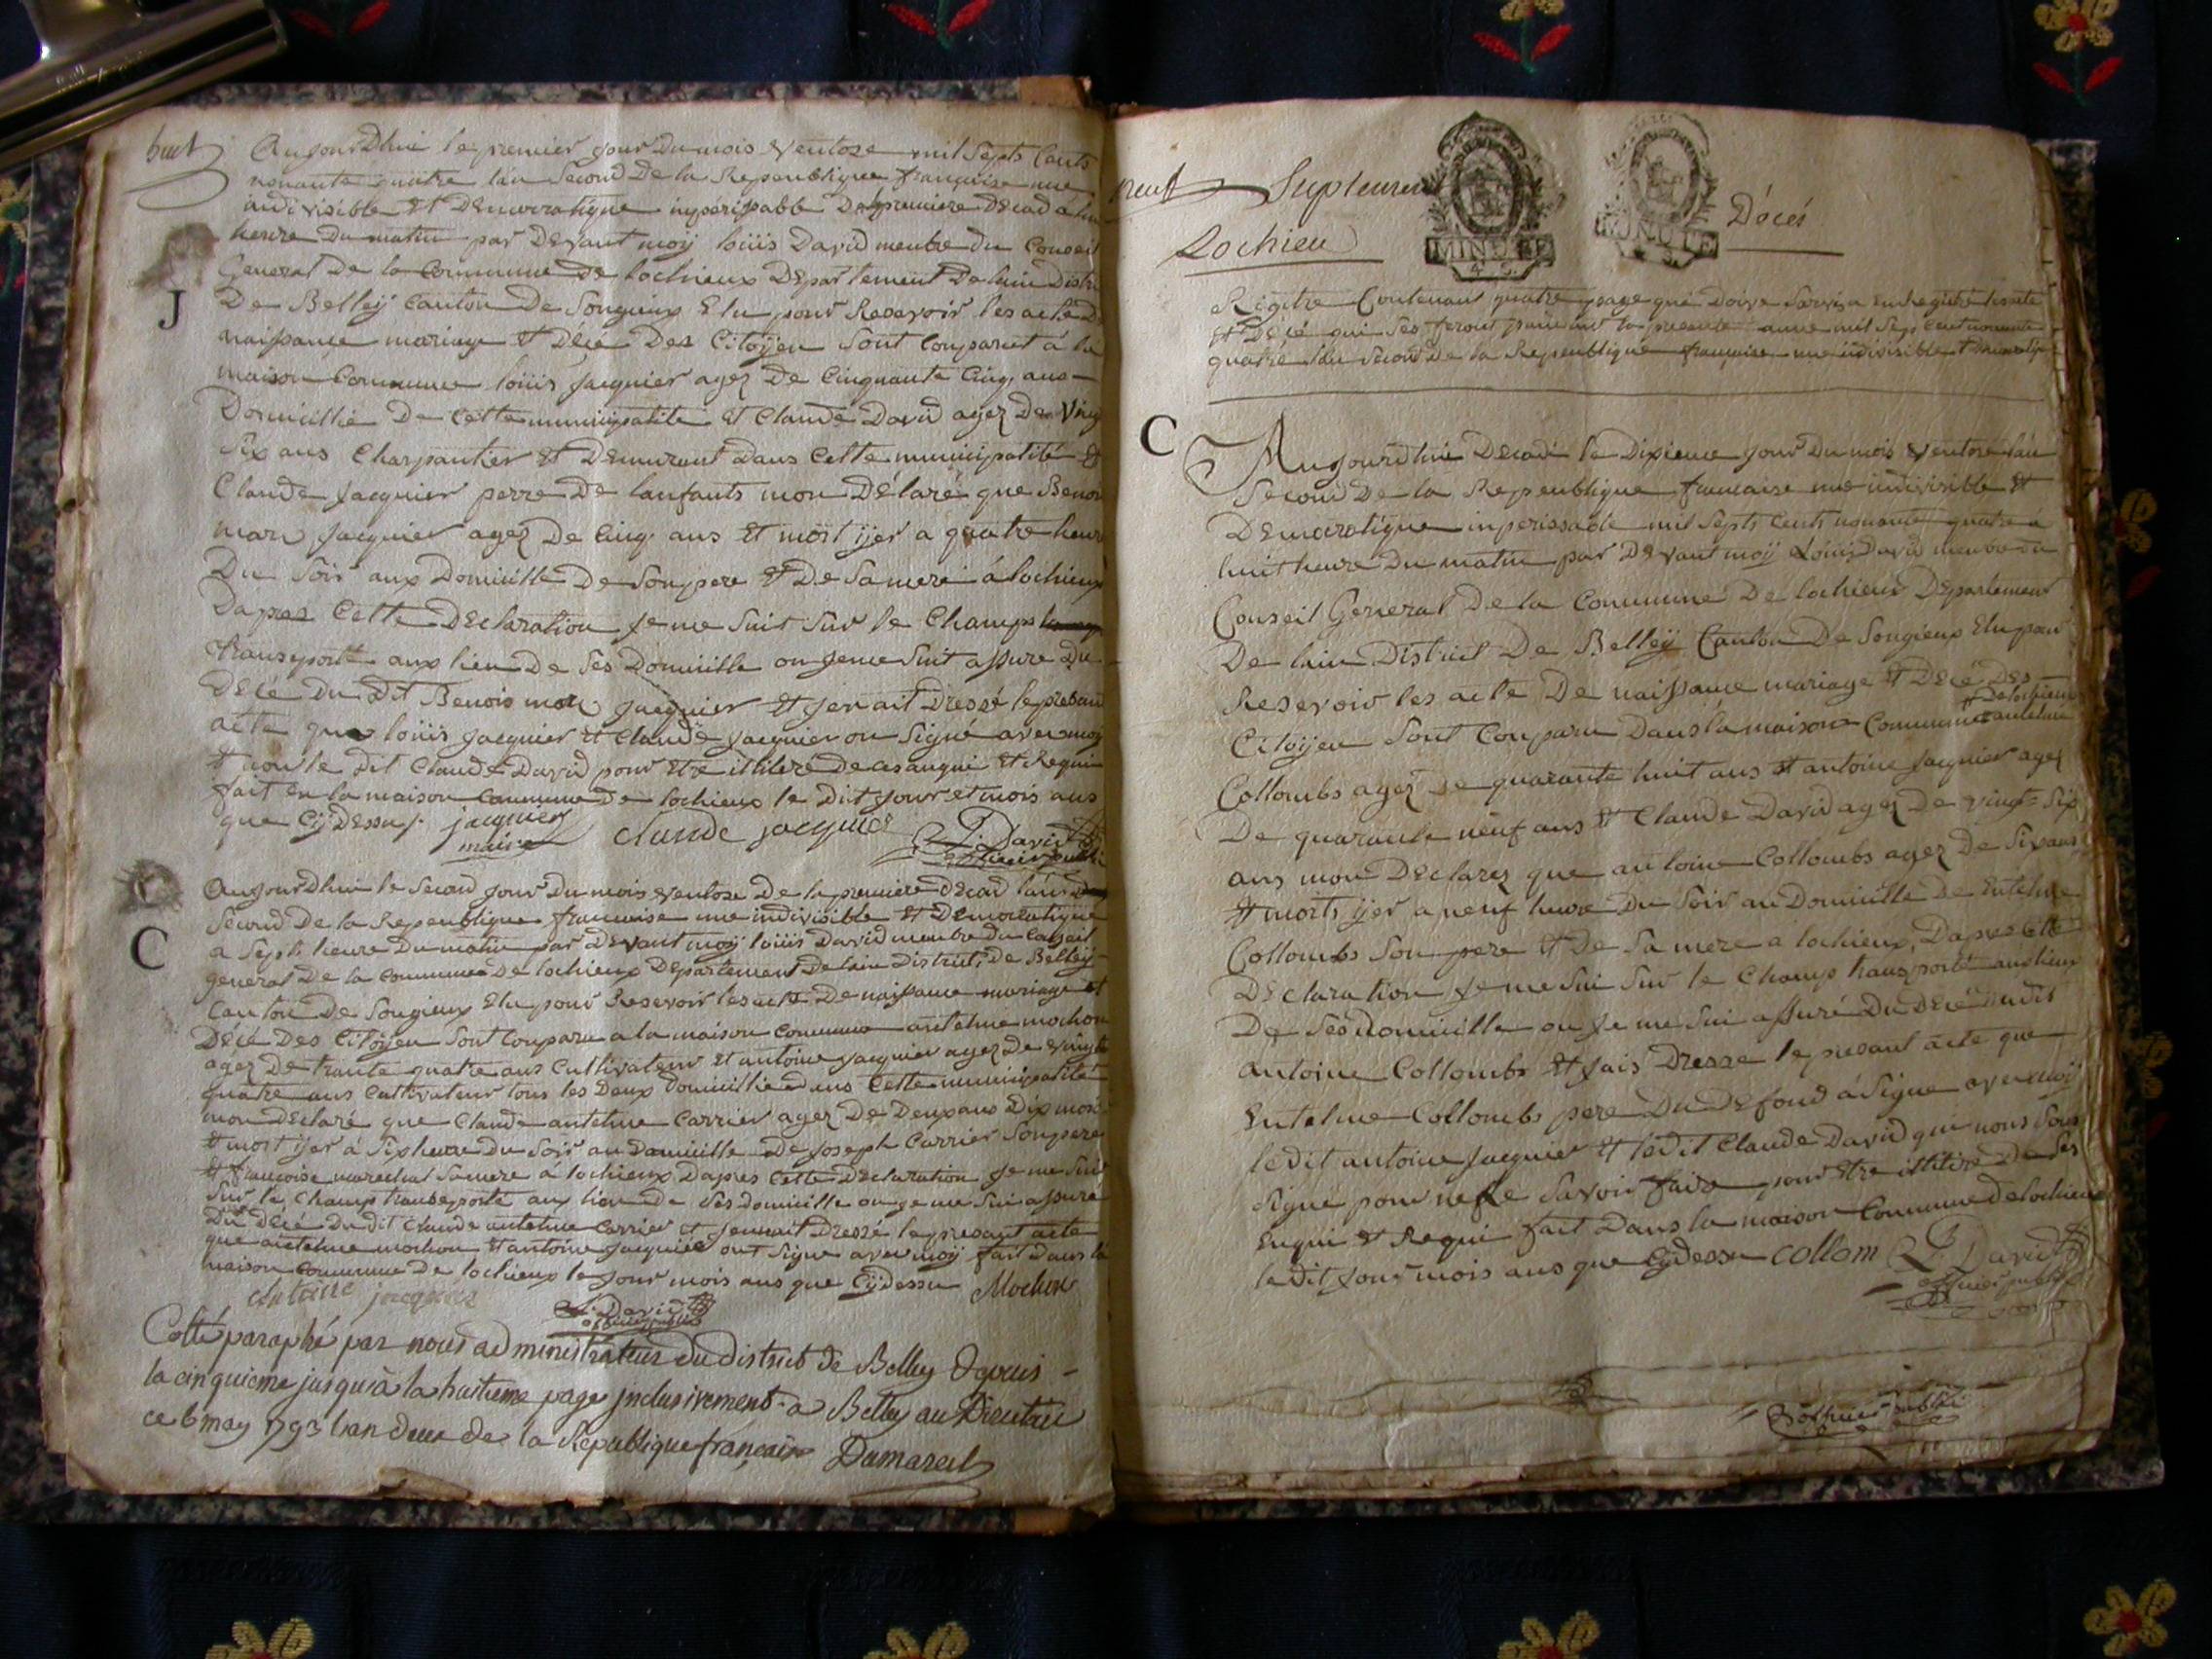 huit
Aujourdhui le premier jour du mois ventoze mil Septs Cents
nonante quatre lan Second De la Repeublique françaoise une
indivisible Et Democratique inperissable De la premiere Decad à huit
heure du matin par Devant moÿ loüis David menbre du Conseil
General de la Commune de lochieux Departement De lain Distri
De Belleÿ Canton De Songieux Elu pour Resevoir les acte De
naissance mariage Et Décé Des Citoÿen Sont Conparut à la
maison Commune loüis Jacquier agez De Cinquante Cinq ans
Domicillié De Cette municipalité Et Claude David agez De Ving
Six ans Charpantier Et Demurant dans Cette municipalité Et
Claude Jacquier perre De lanfants mon Délaré que Benoi
marie Jacquier agez De Cinq ans Et mort ÿer a quatre heure
Du Soir aux Domicille De Son pere Et De Sa mere à lochieux
Dapres Cette Declaration Je me Suit Sur le Champs
transporté aux lieu De Ses Domicille ou Je me Suit assure Du
Décé Du Dit Benois marie Jacquier Et Jen ait Dressé le presant
acte que loüis Jacquier Et Claude Jacquier on Signé avec moÿ
Et non le Dit Claude David pour Etre illiteré De ces anqui Et Requi
fait En la maison Commune De lochieux le Dit Jour et mois ans
que Cÿ Dessus. jacquier claude jacquier L. David
maire officier public
J
Aujourdhui le Second jour Du mois ventose De la premiere Decad lan
Second De la Repeublique francaoise une indivisible Et Democratique
a Sept heure Du matin par Devant moÿ loüis David menbre Du Conseil
general De la Commune De lochieux Departement De lain District De Belleÿ
Canton De Songieux Elu pour Resevoir les acte De naissance mariage Et
Décé Des Citoÿen Sont Conparu a la maison Commune antelme mochon
agez De trante quatre ans Cultivateur Et antoine Jacquier agez De vingt
quatre ans Cultivateur tous les Deux Domicillié dans Cette municipalité
mon Declaré que Claude antelme Carrier agez De Deux ans Dix mois
Et mort ÿer à Six heure Du Soir au Domicille De Joseph Carrier Son pere
Et françoise marechal Sa mere à lochieux Dapres Cette Declaration Je me Suit
Sur le Champ transporté aux lieu De Ses Domicille ou Je me Sui assuré
Du Décé Du Dit Claude antelme Carrier Et Jen ait Dressé le presant acte
que antelme mochon Et antoine Jacquier ont Signe avec moÿ fait Dans la
maison Commune De lochieux le Jour mois ans que Cÿ dessu Mochon
Antoine jacquier L. David
officier public
C
C
Cotté paraphé par nous administrateur du district de Belley Depuis
la cinquieme jusqu'à la huitieme page inclusivement a Belley au Directoire
ce 6 may 1793 lan deux de la Republique françoise Dumarest
neuf Suplement
MINUTE
MINUTE
Décés
Lochieu
Régitre Contenant quatre page qui Doive Servir a Enregistré
Et Décé qui Ses feront la presente anne mil Sept Cent nonante
quatre lan Second De la Repeublique francaise une indivisible Et Democratiq
C
Aujourdhui Decadi le Dixieme jour Du mois ventose lan
Second De la Repeublique francaise une indivisible Et
Democratique inperissable mil Septs Cents nonante quatre à
huit heure Du matin par Devant moÿ Loüis David menbre Du
Conseil General De la Commune De lochieux Departement
De lain District De Belleÿ Canton De Songieux Elu pour
Resevoir les acte De naissance mariage Et Décé Des
Citoÿen Sont Conparu Dans la maison Commune De lochieux antelme
Collombs agez De quarante huit ans Et antoine Jacquier agez
De quarante neuf ans Et Claude David agez De vingt=Six
ans mon Declarez que antoine Collombs agez De Six ans
Et morts ÿer a neuf heure Du Soir au Domicille De Entelme
Collombs Son pere Et De Sa mere a lochieux, Dapres Cette
Declaration Je me Sui Sur le Champ transporté aux lieux
De Ses domicille ou Je me Sui assuré Du Décé dudit
antoine Collombs Et Jais Dressé le presant acte que
Entelme Collombs pere Du Défond à Signe avec moÿ
le dit antoine Jacquier Et ledit Claude David qui nons Sous
Signé pour ne le Savoir faire pour Etre illitiré De Ses
Enqui Et Requi fait Dans la maison Commune De lochieux
le dit Jour mois ans que Cÿ dessu collom L. David
officier public
officier public